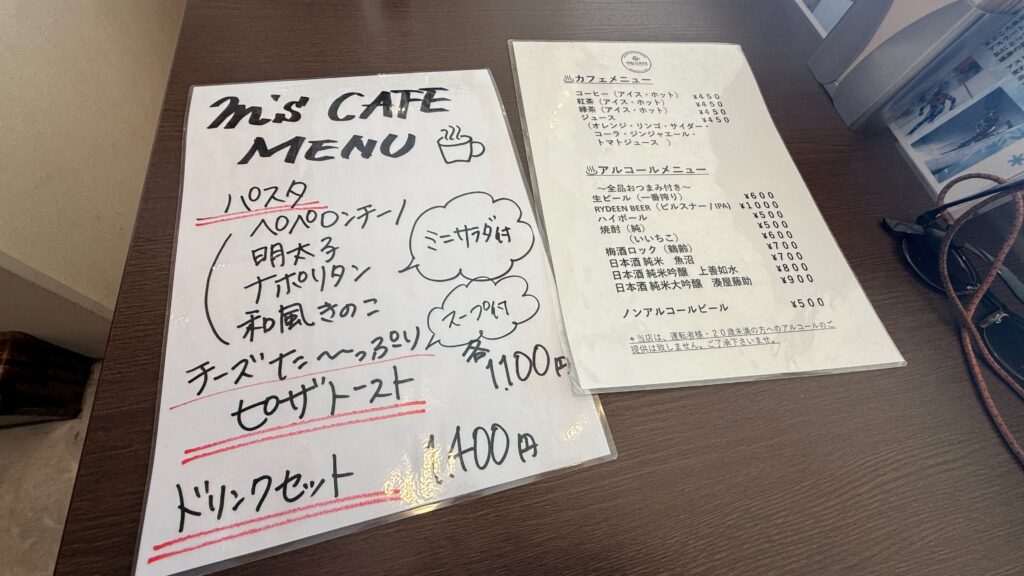 m's CAFE
MENU
パスタ
ペペロンチーノ
明太子
ナポリタン
和風きのこ
ミニサラダ付
スープ付
チーズた〜っぷり
ピザトースト
各1100円
ドリンクセット 1,400円
カフェメニュー
コーヒー(アイス・ホット) ¥450
紅茶(アイス・ホット) ¥450
緑茶(アイス・ホット) ¥450
ジュース ¥450
(オレンジ・リンゴ・サイダー・
コーラ・ジンジャエール・
トマトジュース )
アルコールメニュー
〜全品おつまみ付き〜
生ビール(一番搾り) ¥600
RYDEEN BEER(ピルスナー/IPA) ¥1000
ハイボール ¥500
焼酎(純) ¥500
(いいちこ) ¥600
梅酒ロック(鶴齢) ¥700
日本酒 純米 魚沼 ¥700
日本酒 純米吟醸 上善如水 ¥800
日本酒 純米大吟醸 湊屋藤助 ¥900
ノンアルコールビール ¥500
*当店は、運転者様・20歳未満の方へのアルコールのご
提供は致しません。ご了承下さいませ。